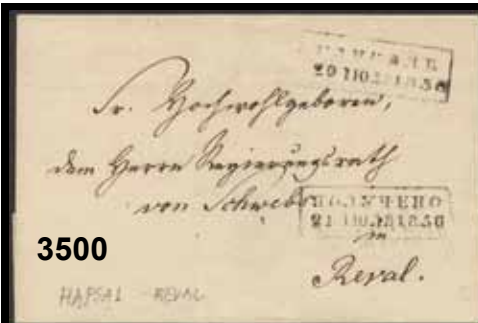 ГАПСАЛЬ
20 ІЮЛ 1856
Sr. Hochwohlgeboren,
dem Herrn Regierungsrath
von Schwebs
ПОЛУЧЕНО
21 ІЮЛ 1856
in
Reval.
3500
HAPSAL - REVAL